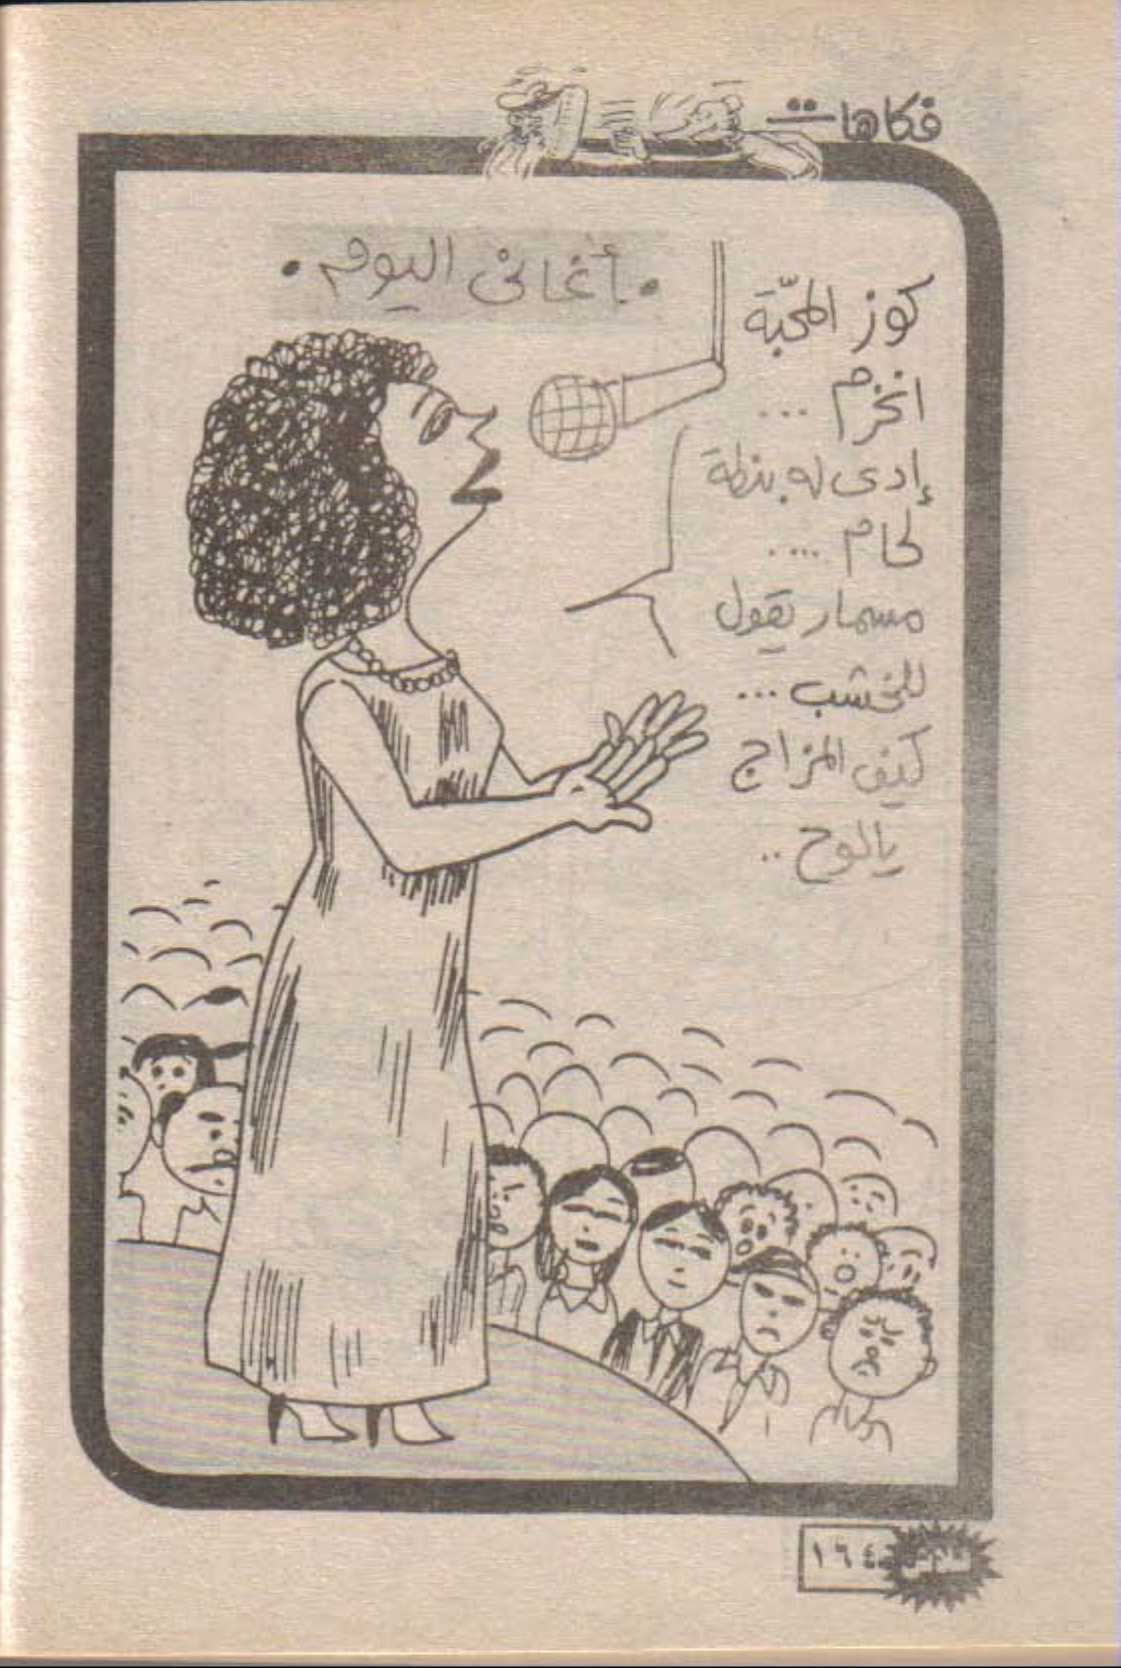 فكاهات
• أغانى اليوم •
كوز المحبّة
انخرم ...
إدى له بنطة
لحام ....
مسمار يقول
للخشب ...
كيف المزاج
يا لوح ..
١٦٤